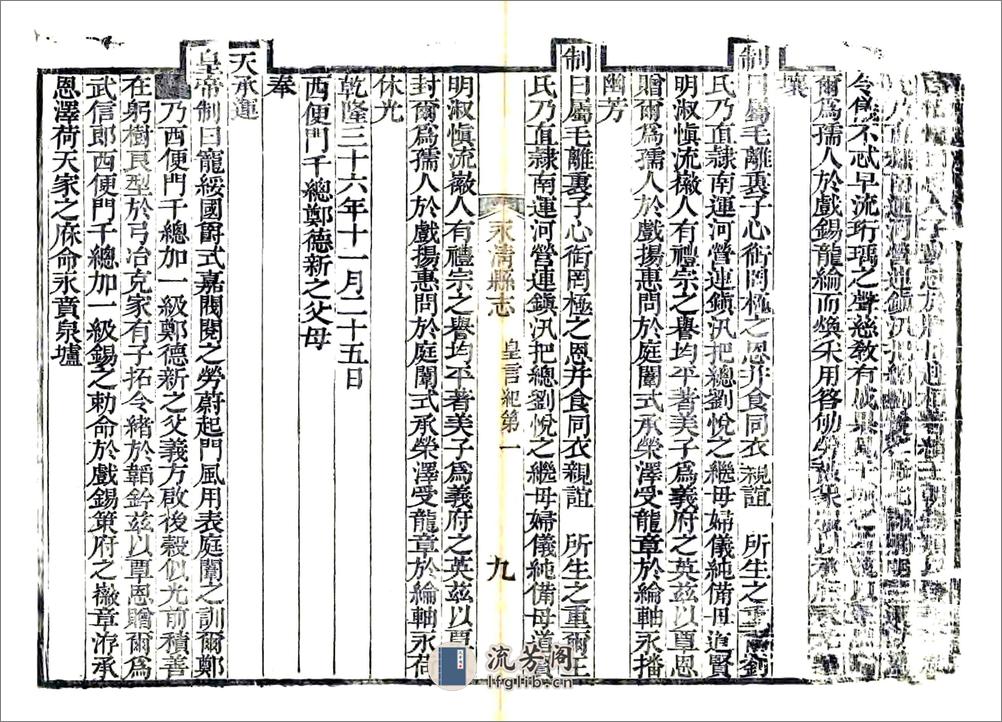 氏乃直隸南運河營連鎮汛把總
令儀不忒早流珩瑀之聲慈敎有成
爾爲孺人於戲錫龍綸而煥采用答劬勞
壤
制曰屬毛離裏子心銜罔極之恩并食同衣親誼 所生之重劉
氏乃直隸南運河營連鎮汛把總劉悅之繼母婦儀純備母道賢
明淑愼流徽人有禮宗之譽均平著美子爲義府之英茲以覃恩
贈爾爲孺人於戲揚惠問於庭闈式承榮澤受龍章於綸軸永播
幽芳
制曰屬毛離裏子心銜罔極之恩并食同衣親誼 所生之重爾王
氏乃直隸南運河營連鎮汛把總劉悅之繼母婦儀純備母道賢
永清縣志 皇言紀第一 九
明淑愼流徽人有禮宗之譽均平著美子爲義府之英茲以覃
封爾爲孺人於戲揚惠問於庭闈式承榮澤受龍章於綸軸永荷
休光
乾隆三十六年十一月二十五日
西便門千總鄭德新之父母
奉
天承運
皇帝制曰龍綏國爵式嘉閥閱之勞蔚起門風用表庭闈之訓爾鄭
乃西便門千總加一級鄭德新之父義方啟後穀似光前積善
在躬樹良型於弓冶克家有子拓令緒於韜鈐茲以覃恩贈爾爲
武信郎西便門千總加一級錫之勅命於戲錫策府之徽章洊承
恩澤荷天家之庥命永賁泉壚
流芳阁
lfglib.cn